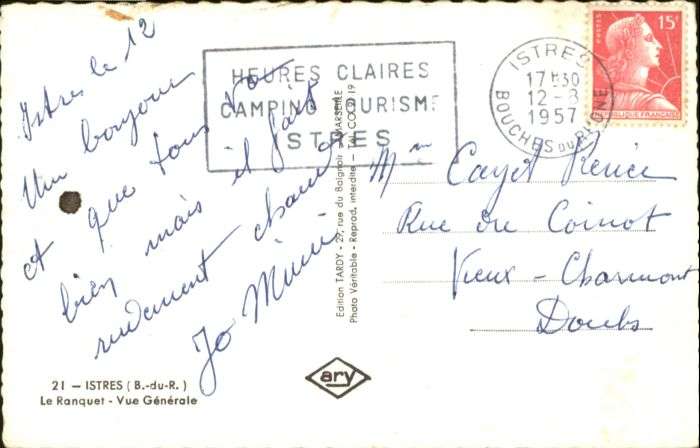 Istres le 12
Un bonjour
et que tous va
bien mais il fait
rudement chaud
Jo Mimi
21 — ISTRES (B.-du-R.)
Le Ranquet - Vue Générale
HEURES CLAIRES
CAMPING TOURISME
ISTRES
Edition TARDY - 29, rue du Baignoir - MARSEILLE
Photo Véritable - Reprod. interdite -
ary
ISTRES
17H30
12-8
1957
BOUCHES DU RHONE
POSTES
15F
REPUBLIQUE FRANÇAISE
Mme Cayot Renée
Rue du Coinot
Vieux - Charmont
Doubs